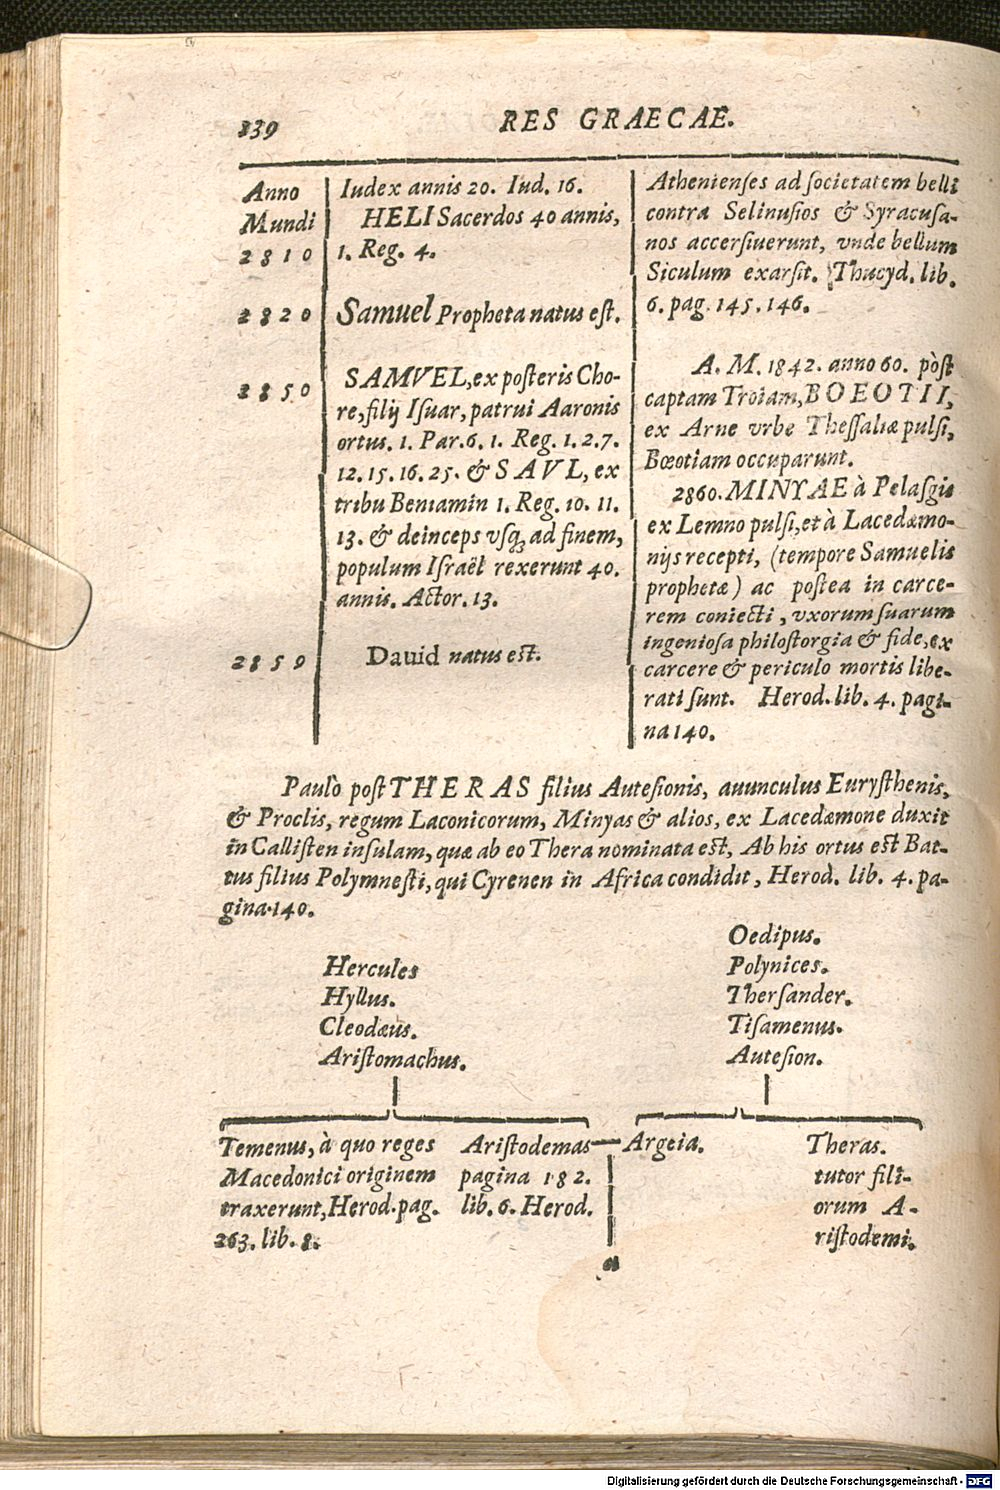 239
RES GRAECAE.
Anno
Mundi
2810
2820
2850
2859
Iudex annis 20. Iud. 16.
HELI Sacerdos 40 annis,
1. Reg. 4.
Samuel Propheta natus eſt.
SAMVEL, ex poſteris Cho-
re, filij Iſuar, patrui Aaronis
ortus. 1. Par. 6. 1. Reg. 1. 2. 7.
12. 15. 16. 25. & SAVL, ex
tribu Beniamin 1. Reg. 10. 11.
13. & deinceps vſq; ad finem,
populum Iſraël rexerunt 40.
annis. Actor. 13.
Dauid natus est.
Athenienſes ad ſocietatem belli
contra Selinuſios & Syracuſa-
nos accerſiuerunt, vnde bellum
Siculum exarſit. Thucyd. lib.
6. pag. 145. 146.
A. M. 1842. anno 60. pòst
captam Troiam, BOEOTII,
ex Arne vrbe Theſſaliæ pulſi,
Bœotiam occuparunt.
2860. MINYAE à Pelaſgis
ex Lemno pulſi, et à Lacedæmo-
nijs recepti, (tempore Samuelis
prophetæ) ac poſtea in carce-
rem coniecti, vxorum ſuarum
ingenioſa philoſtorgia & fide, ex
carcere & periculo mortis libe-
rati ſunt. Herod. lib. 4. pagi-
na 140.
Paulò poſt THERAS filius Auteſionis, auunculus Euryſthenis,
& Proclis, regum Laconicorum, Minyas & alios, ex Lacedæmone duxit
in Calliſten inſulam, quæ ab eo Thera nominata est, Ab his ortus est Bat-
tus filius Polymneſti, qui Cyrenen in Africa condidit, Herod. lib. 4. pa-
gina 140.
Hercules
Hyllus.
Cleodæus.
Ariſtomachus.
Oedipus.
Polynices.
Therſander.
Tiſamenus.
Auteſion.
Temenus, à quo reges
Macedonici originem
traxerunt, Herod. pag.
263. lib. 8.
Ariſtodemas
pagina 182.
lib. 6. Herod.
Argeia.
Theras.
tutor fili-
orum A-
riſtodemi.
a
Digitalisierung gefördert durch die Deutsche Forschungsgemeinschaft - DFG